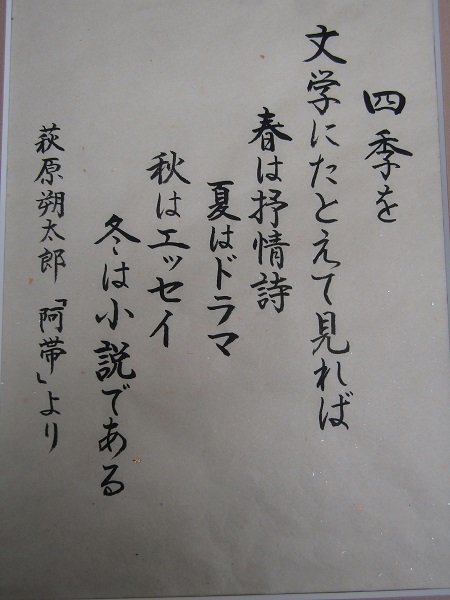 四季を
文学にたとえて見れば
春は抒情詩
夏はドラマ
秋はエッセイ
冬は小説である
萩原朔太郎「阿帯」より